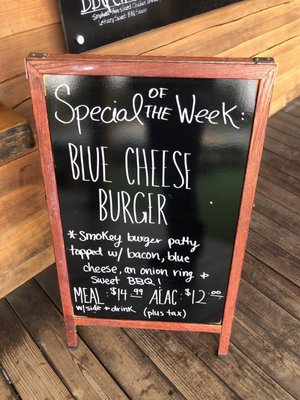 Smoked Pulled Chicken
Lettuce, Sweet BBQ Sauce
Special OF THE Week:
BLUE CHEESE
BURGER
* Smokey burger patty
topped w/ bacon, blue
cheese, an onion ring +
Sweet BBQ!
MEAL: $14.99 ALAC: $12.00
w/side + drink (plus tax)